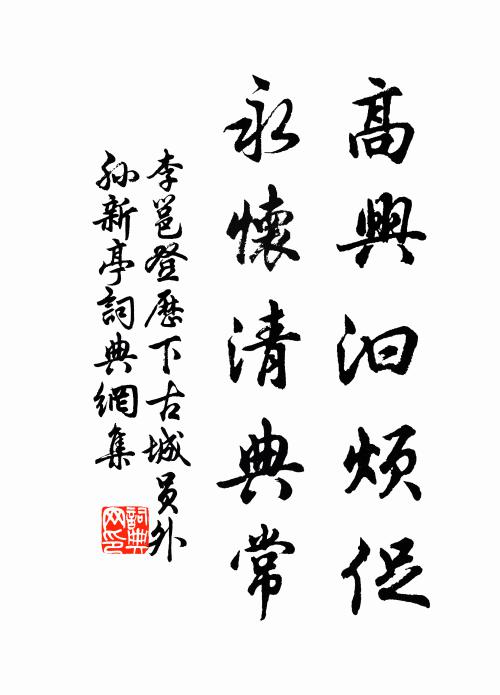 高興汩煩促
永懷清典常
李邕登歷下古城員外
孫新亭詞典網集
詞典網印